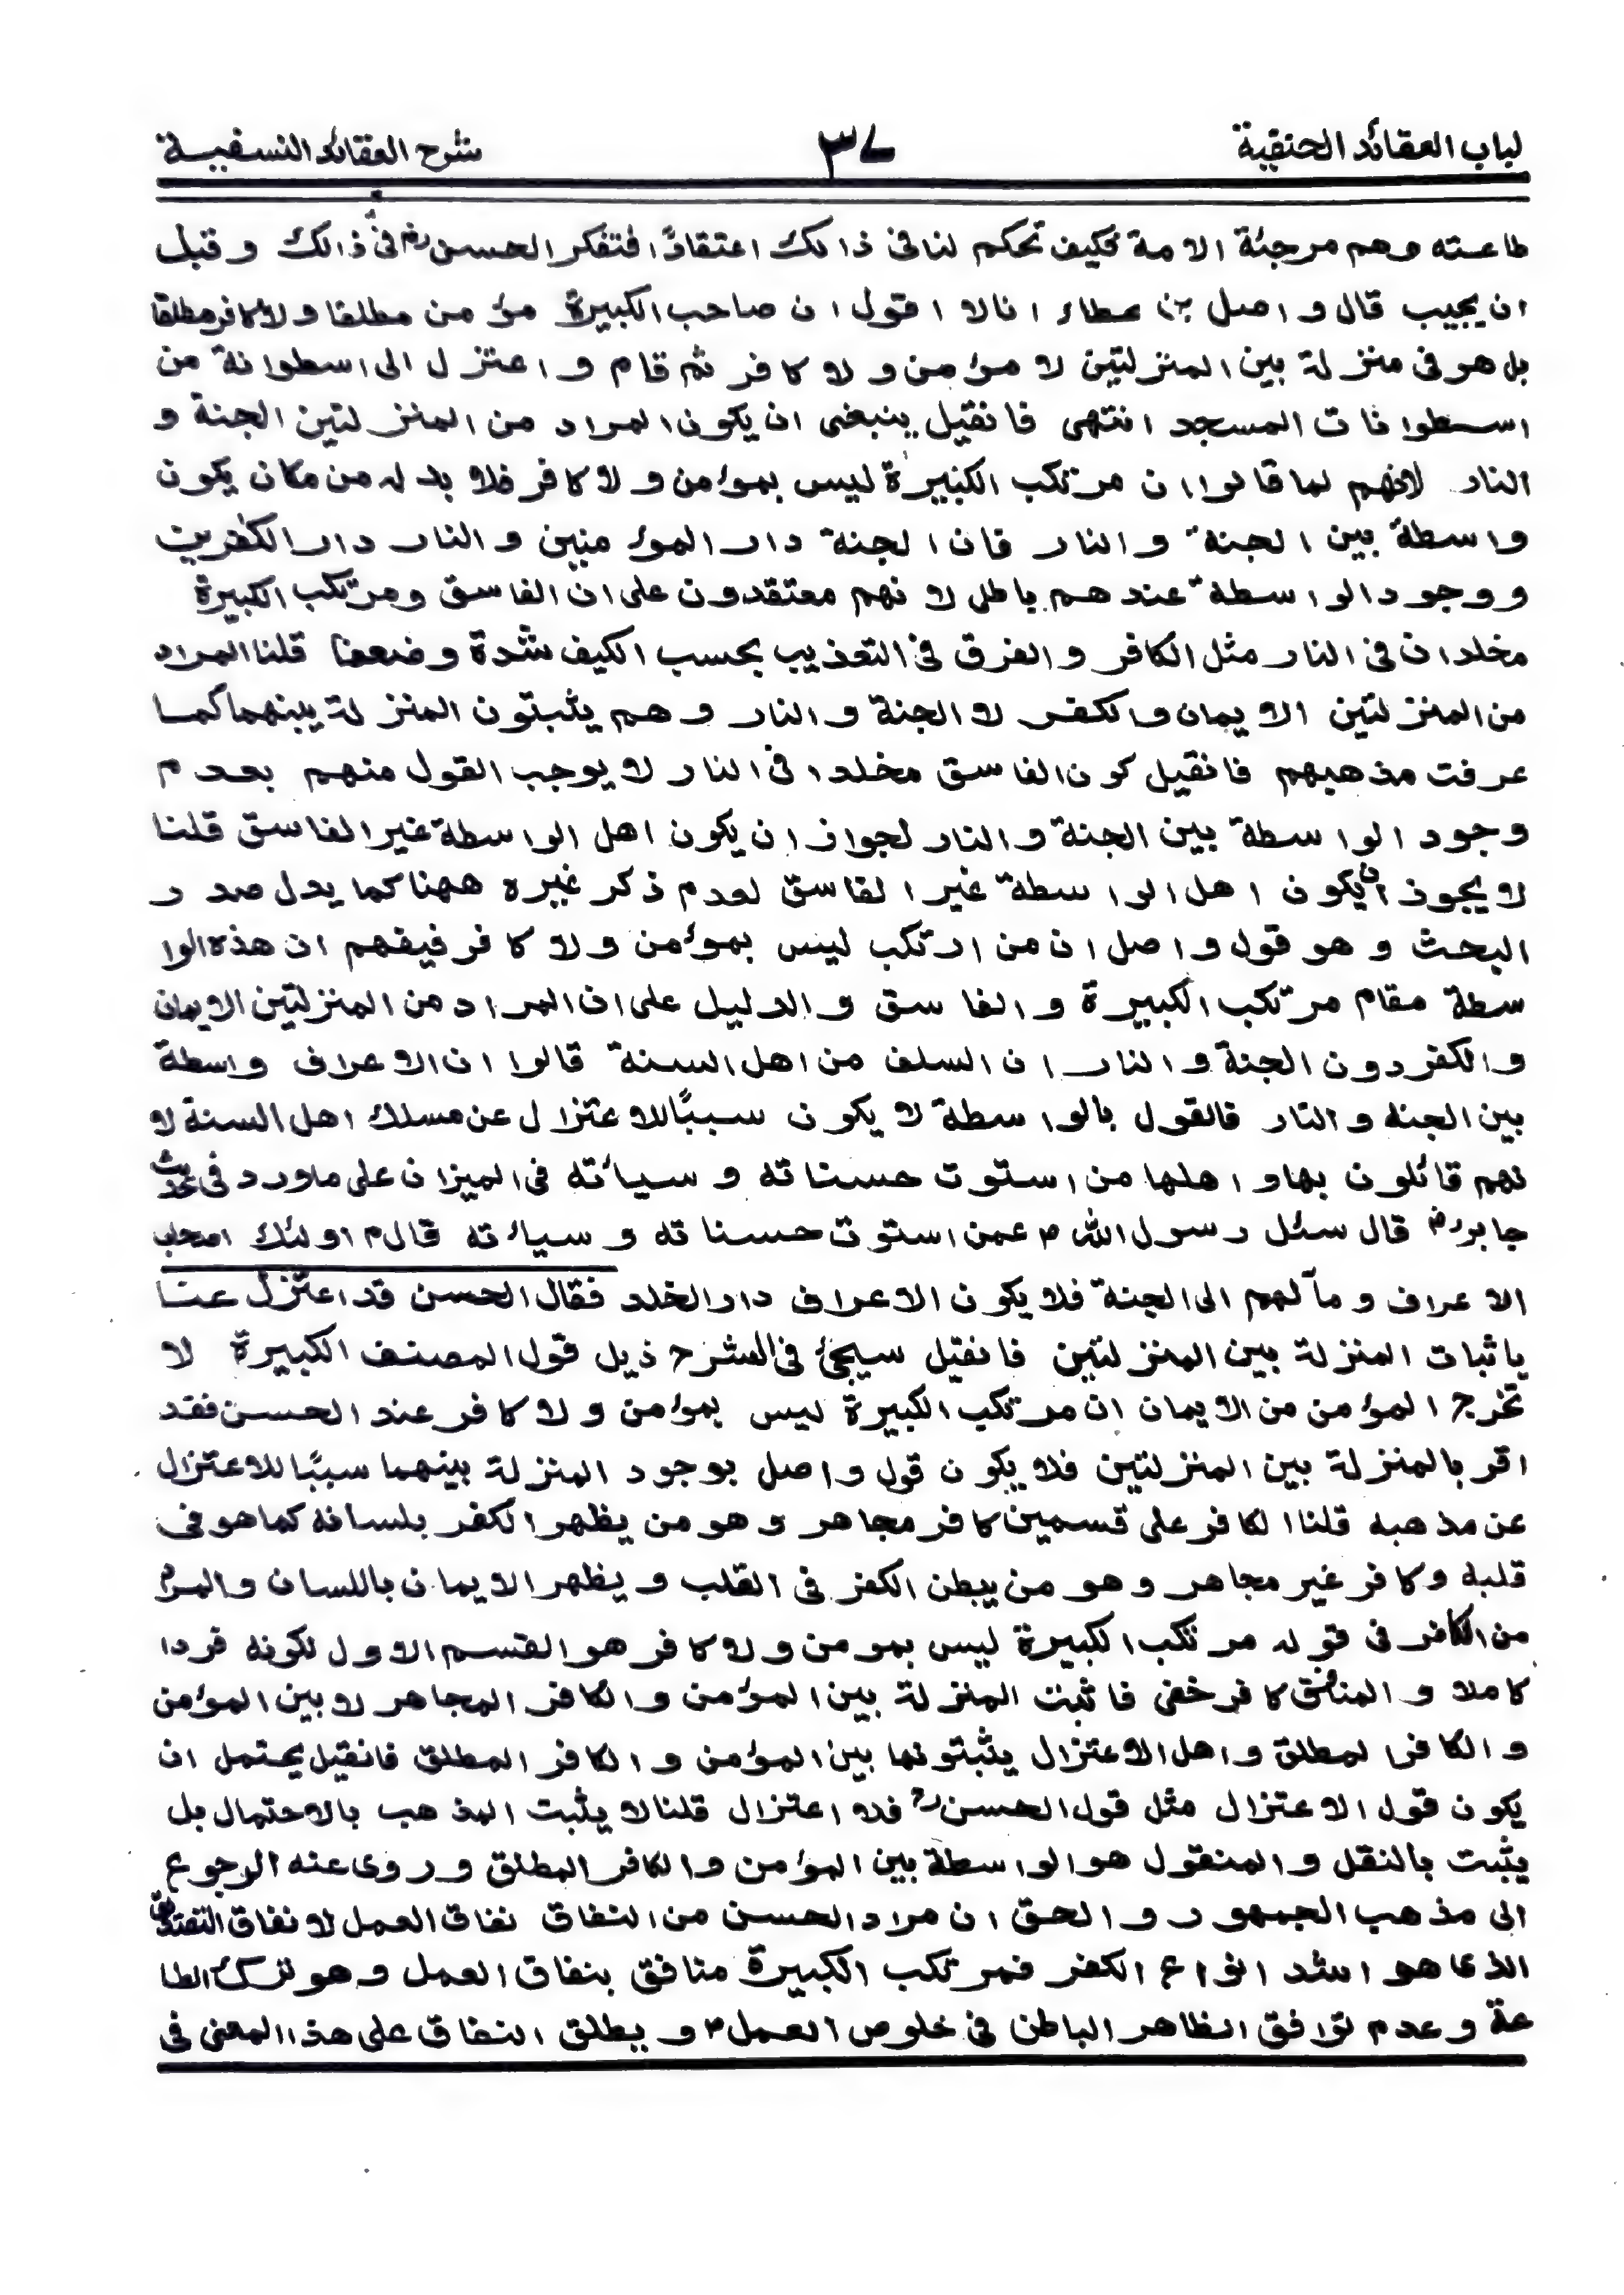 لباب العقائد الحنقية ٣٧ شرح العقائد النسفية
طاعته وهم مرجئة الامة فكيف تحكم لنا فى ذالك اعتقادًا فتفكر الحسن رض فى ذالك وقبل
ان يجيب قال واصل بن عطاء انا لا اقول ان صاحب الكبيرة مؤمن مطلقا ولا كافر مطلقا
بل هو فى منزلة بين المنزلتين لا مؤمن ولا كافر ثم قام واعتزل الى اسطوانة من
اسطوانات المسجد انتهى فانقيل ينبغى ان يكون المراد من المنزلتين الجنة و
النار لانهم لما قالوا ان مرتكب الكبيرة ليس بمؤمن ولا كافر فلا بد له من مكان يكون
واسطة بين الجنة والنار فان الجنة دار المؤمنين والنار دار الكفرين
ووجود الواسطة عندهم باطل لانهم معتقدون على ان الفاسق ومرتكب الكبيرة
مخلدان فى النار مثل الكافر والفرق فى التعذيب بحسب الكيف شدة وضعفا قلنا المراد
من المنزلتين الايمان والكفر لا الجنة والنار وهم يثبتون المنزلة بينهما كما
عرفت مذهبهم فانقيل كون الفاسق مخلدا فى النار لا يوجب القول منهم بعدم
وجود الواسطة بين الجنة والنار لجواز ان يكون اهل الواسطة غير الفاسق قلنا
لا يجوز ان يكون اهل الواسطة غير الفاسق لعدم ذكر غيره ههنا كما يدل صدر
البحث وهو قول واصل ان من ارتكب ليس بمؤمن ولا كافر فيفهم ان هذه الوا
سطة مقام مرتكب الكبيرة والفاسق والدليل على ان المراد من المنزلتين الايمان
والكفر دون الجنة والنار ان السلف من اهل السنة قالوا ان الاعراف واسطة
بين الجنة والنار فالقول بالواسطة لا يكون سببًا للاعتزال عن مسلك اهل السنة لا
نهم قائلون بها واهلها من استوت حسناته وسيأته فى الميزان على ما ورد فى حديث
جابر رض قال سئل رسول الله م عمن استوت حسناته وسيأته قال م اولئك اصحاب
الاعراف ومآلهم الى الجنة فلا يكون الاعراف دار الخلد فقال الحسن قد اعتزل عنا
باثبات المنزلة بين المنزلتين فانقيل سيجئ فى الشرح ذيل قول المصنف الكبيرة لا
تخرج المؤمن من الايمان ان مرتكب الكبيرة ليس بمؤمن ولا كافر عند الحسن فقد
اقر بالمنزلة بين المنزلتين فلا يكون قول واصل بوجود المنزلة بينهما سببًا للاعتزال
عن مذهبه قلنا الكافر على قسمين كافر مجاهر وهو من يظهر الكفر بلسانه كما هو فى
قلبه وكافر غير مجاهر وهو من يبطن الكفر فى القلب ويظهر الايمان باللسان والمراد
من الكافر فى قوله مرتكب الكبيرة ليس بمومن ولا كافر هو القسم الاول لكونه فردا
كاملا والمنافق كافر خفى فاثبت المنزلة بين المؤمن والكافر المجاهر لا بين المؤمن
والكافر المطلق واهل الاعتزال يثبتونها بين المؤمن والكافر المطلق فانقيل يحتمل ان
يكون قول الاعتزال مثل قول الحسن رح فلا اعتزال قلنا لا يثبت المذهب بالاحتمال بل
يثبت بالنقل والمنقول هو الواسطة بين المؤمن والكافر المطلق وروى عنه الرجوع
الى مذهب الجمهور والحق ان مراد الحسن من النفاق نفاق العمل لا نفاق
الذى هو اشد انواع الكفر فمرتكب الكبيرة منافق بنفاق العمل وهو ترك الطا
عة وعدم توافق الظاهر الباطن فى خلوص العمل م ويطلق النفاق على هذا المعنى فى